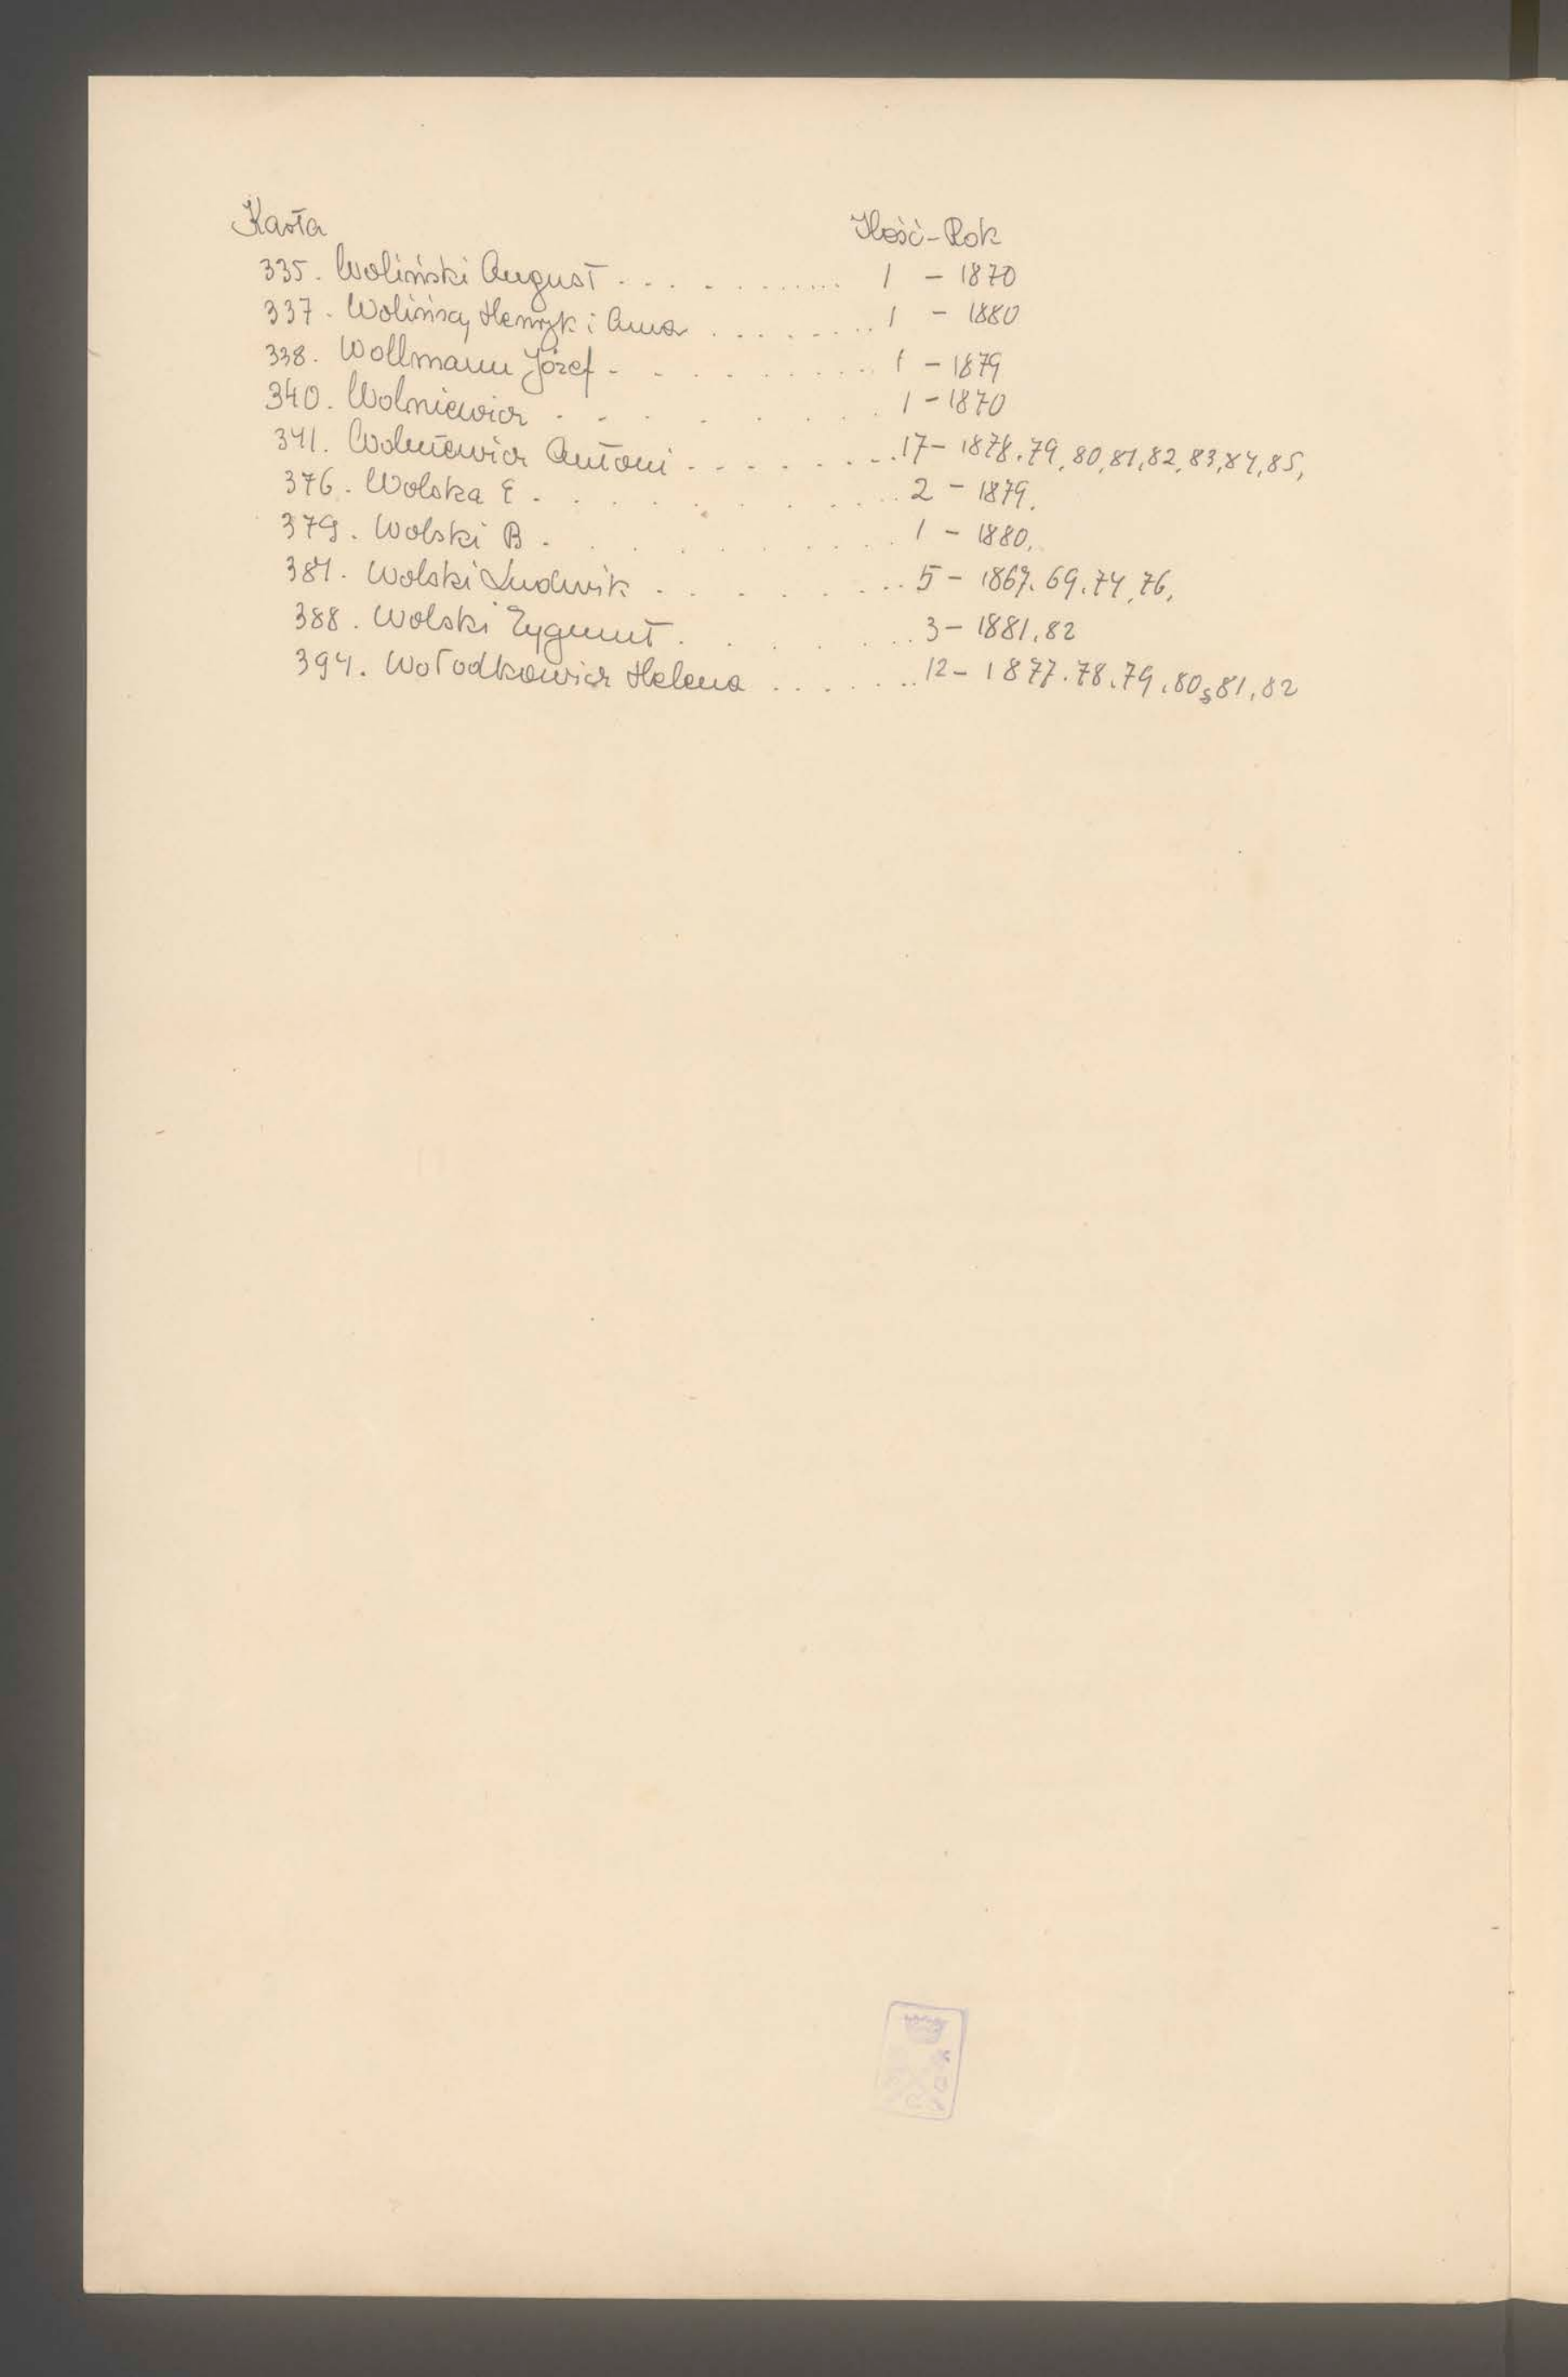 Karta Ilość-Rok
335. Woliński August . . . . . . . . . . . 1 - 1870
337. Wolińscy Henryk i Anna . . . . . . . . 1 - 1880
338. Wollmann Józef - . . . . . . . . . . 1 - 1879
340. Wolniewicz . . . . . . . . 1 - 1870
341. Wolniewicz Antoni . . . . . . . . 17 - 1878.79,80,81,82,83,84,85,
376. Wolska E . . . . . . . . . . 2 - 1879.
379. Wolski B . . . . . . . . . . 1 - 1880.
381. Wolski Ludwik . . . . . . . . . 5 - 1867.69.74,76,
388. Wolski Zygmunt . . . . . . . . 3 - 1881,82
394. Wołodkowicz Helena . . . . . . . 12 - 1877.78.79,80,81,82